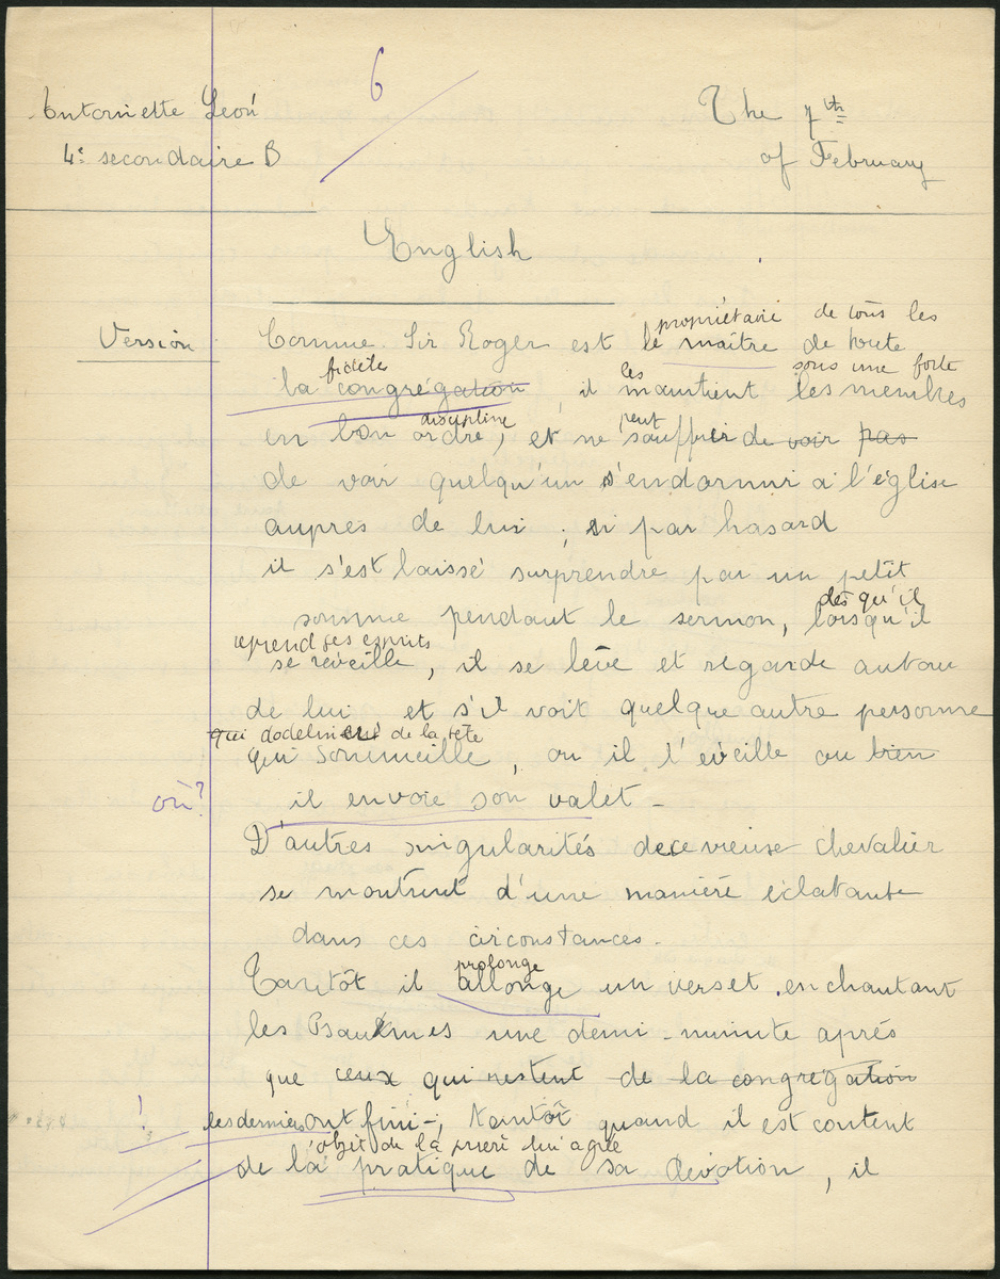 6
Antoinette Léon
The 7th
4e secondaire B
of February
English
propriétaire de tous les
Version
Comme Sir Roger est le maître de toute
fidèle
les
sous une forte
la congrégation, il maintient les membres
discipline
peut
en bon ordre, et ne souffrir de voir pas
de voir quelqu'un s'endormir à l'église
auprès de lui ; si par hasard
il s'est laissé surprendre par un petit
dès qu'il
somme pendant le sermon, lorsqu'il
reprend ses esprits
se réveille, il se lève et regarde autour
de lui et s'il voit quelque autre personne
qui dodelinent de la tête
qui sommeille, ou il l'éveille ou bien
où?
il envoie son valet -
D'autres singularités de ce vieux chevalier
se montrent d'une manière éclatante
dans ces circonstances.
prolonge
Tantôt il allonge un verset en chantant
les Psaumes une demi-minute après
que ceux qui restent de la congrégation
!
les derniers ont fini -; tantôt quand il est content
objet de la prière lui agrée
de la pratique de sa dévotion, il